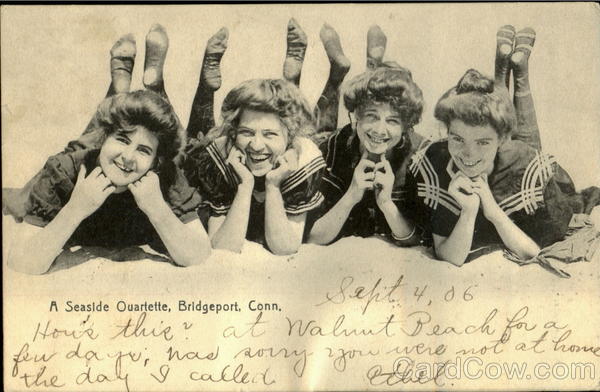 A Seaside Quartette, Bridgeport, Conn.
Sept 4, 06
How's this? at Walnut Beach for a
few days, was sorry you were not at home
the day I called Ethel
CardCow.com